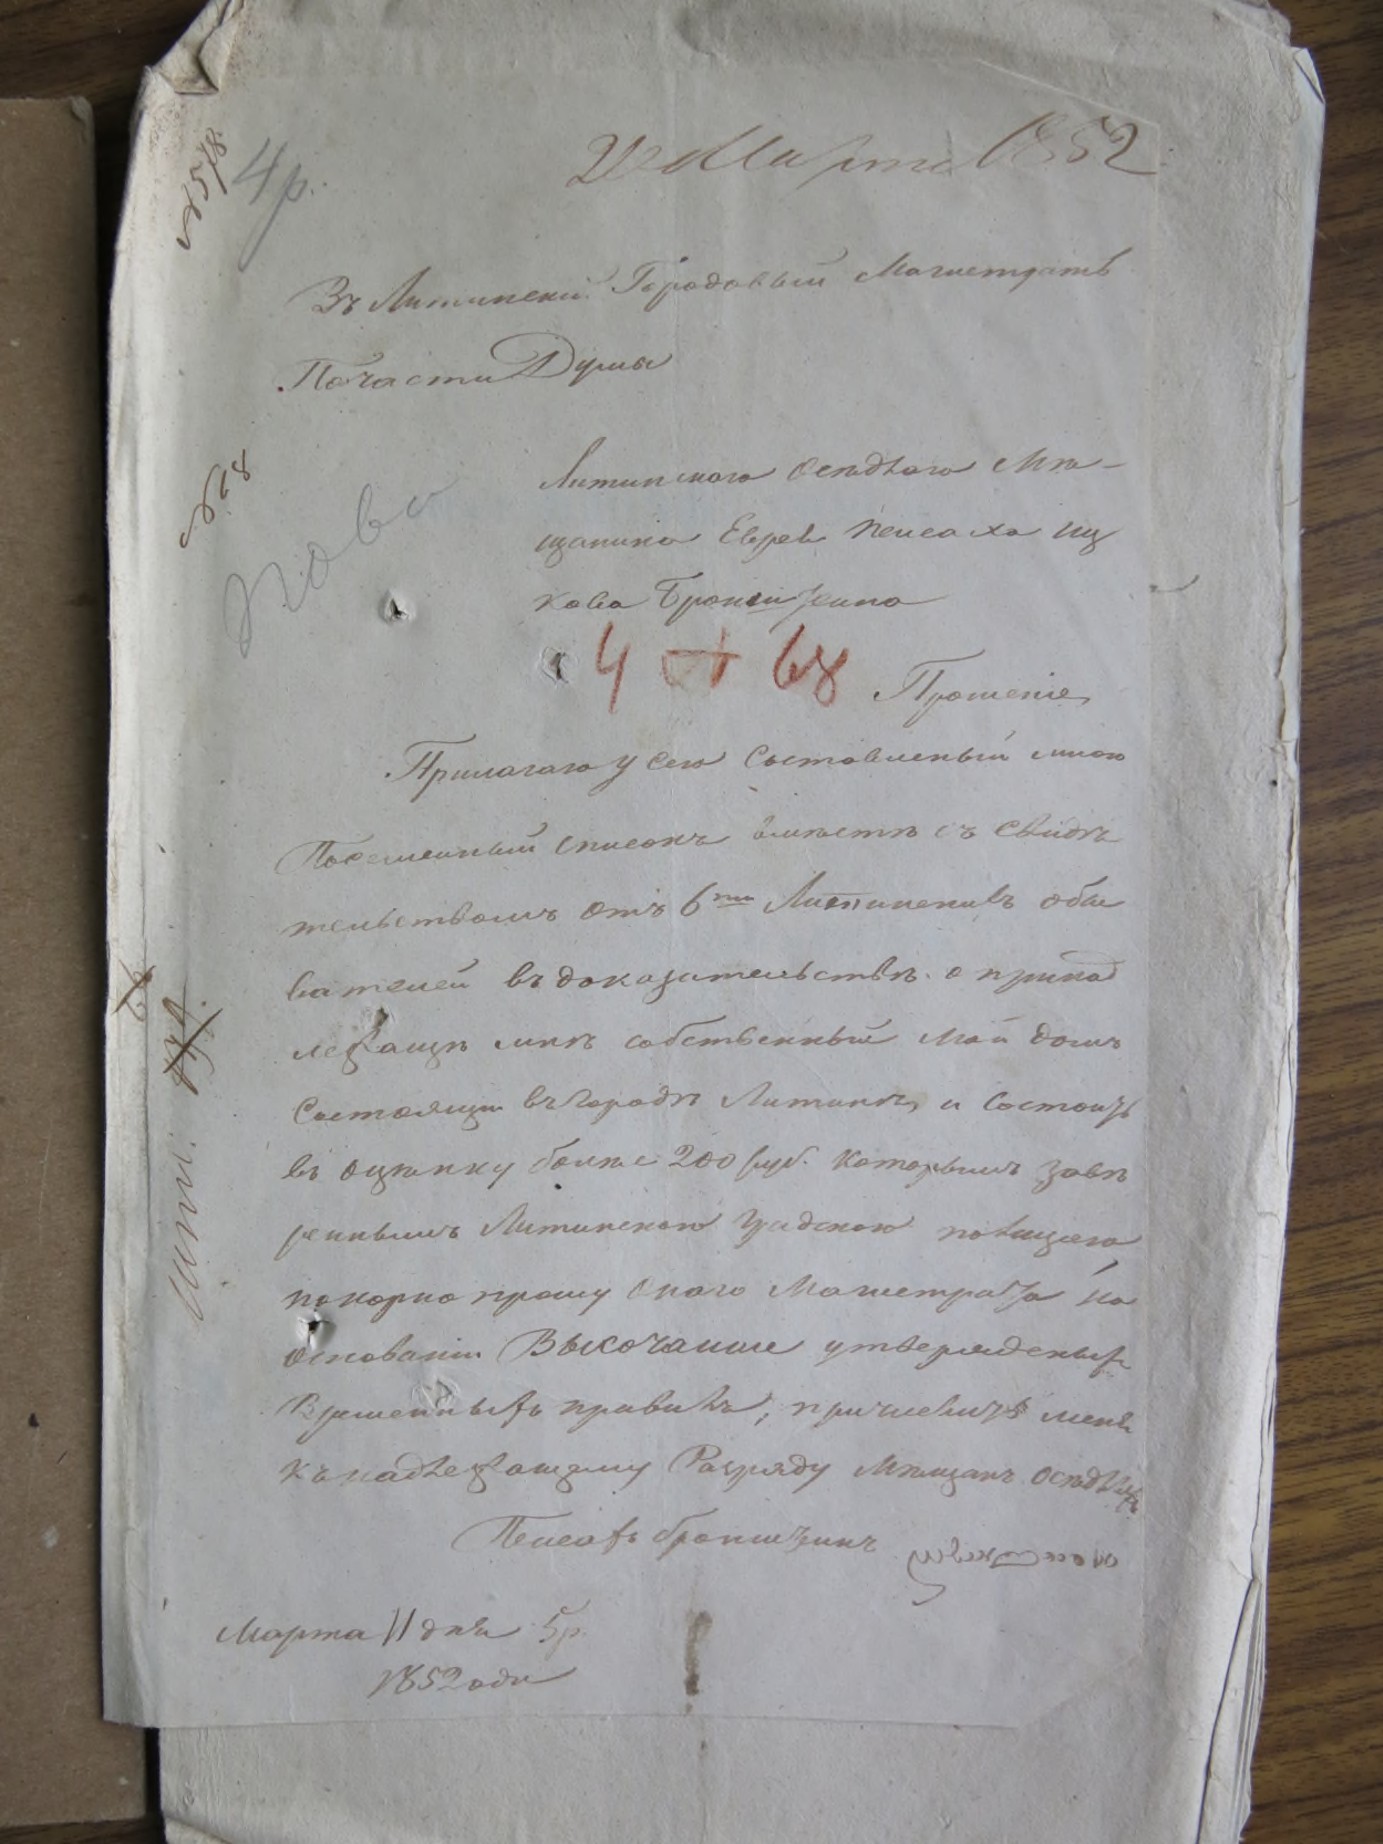 № 578
4 р.
Марта 1852
Въ Литинскій Городовый Магистратъ
По части Думы
№ 18
Литинского оседлого Мѣ-
щанина Еврея Пейсаха Иц
кова Бронштейна
4 68
Прошеніе
Прилагаю у сего Составленый мною
Посемейный списокъ вместѣ съ Свидѣ
тельствомъ отъ 6ти Литинскихъ обы
вателей въ доказательствѣ о принад
лежащѣ мнѣ собственный мой домъ
Состоящи въ городѣ Литинѣ, и Состоитъ
въ оцѣнку болѣе 200 руб. которымъ завѣ
реннымъ Литинскою
покорно прошу оного Магистрата на
основаніи Высочайше утвержденых
Временныхъ правилъ, причислить меня
къ надлежащему Разряду Мѣщанъ оседлыхъ
Пейсахъ
Марта 11 дня 5 р.
1852 года